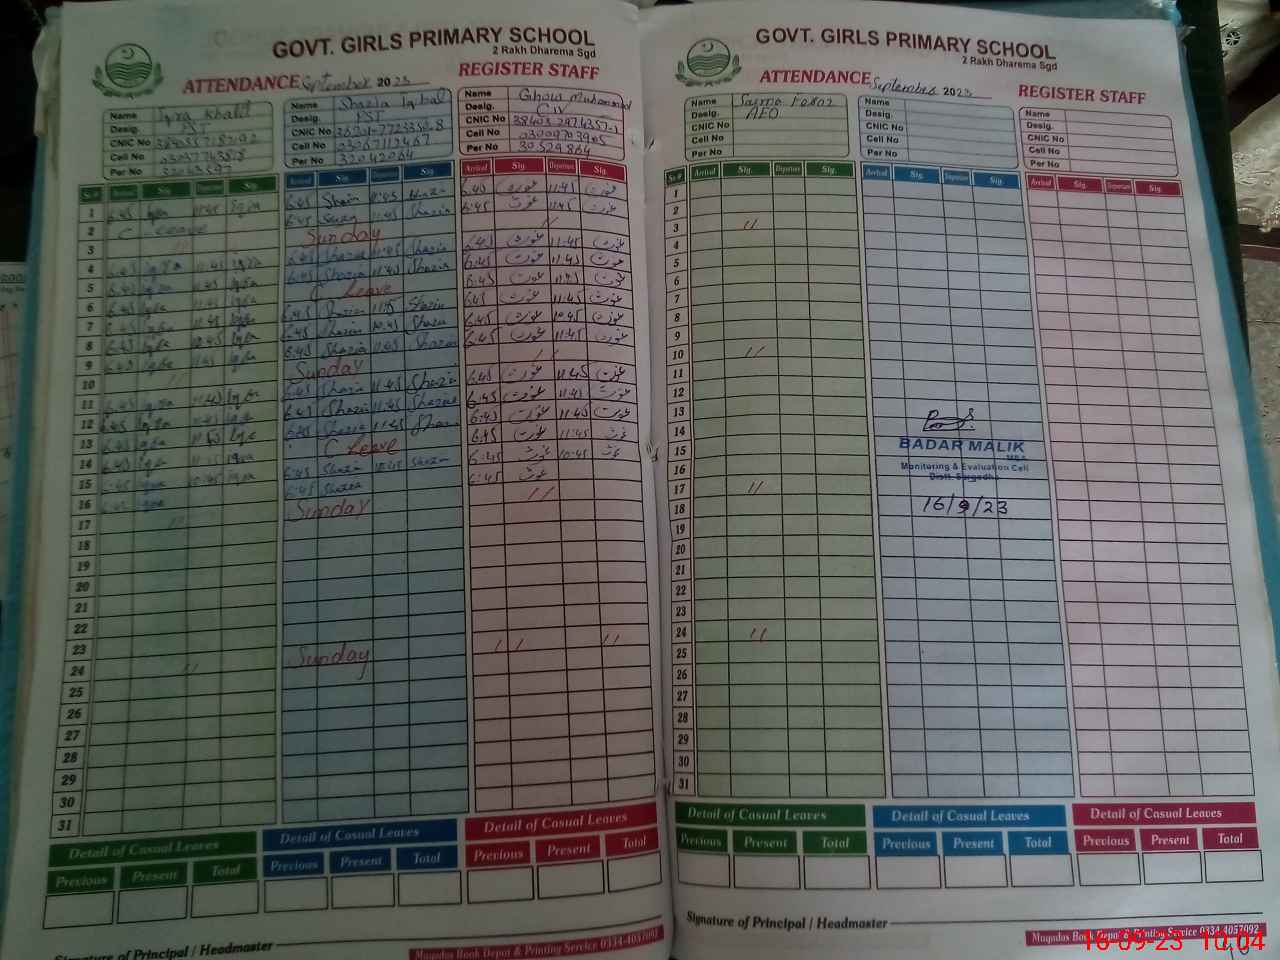 GOVT. GIRLS PRIMARY SCHOOL
2 Rakh Dharema Sgd
ATTENDANCE September 2023 REGISTER STAFF
Name Iqra Khalil
Desig. PST
CNIC No
Cell No
Per No
Name Shazia Iqbal
Desig. PST
CNIC No
Cell No 03067112467
Per No 32042064
Name Ghous Muhammad
Desig. C-IV
CNIC No 38403 2974357-1
Cell No 03009703905
Per No 30529864
Sr.# Arrival Sig. Departure Sig. Arrival Sig. Departure Sig. Arrival Sig. Departure Sig.
1 6:45 Iqra 11:45 Iqra 6:45 Shazia 11:45 Shazia 6:45 غوث 11:45 غوث
2 C Leave 6:45 Shazia 11:45 Shazia 6:45 غوث 11:45 غوث
3 // Sunday //
4 6:45 Iqra 11:45 Iqra 6:45 Shazia 11:45 Shazia 6:45 غوث 11:45 غوث
5 6:45 Iqra 11:45 Iqra 6:45 Shazia 11:45 Shazia 6:45 غوث 11:45 غوث
6 6:45 Iqra 11:45 Iqra C Leave 6:45 غوث 11:45 غوث
7 6:45 Iqra 11:45 Iqra 6:45 Shazia 11:45 Shazia 6:45 غوث 11:45 غوث
8 6:45 Iqra 10:45 Iqra 6:45 Shazia 10:45 Shazia 6:45 غوث 10:45 غوث
9 6:45 Iqra 11:45 Iqra 6:45 Shazia 11:45 Shazia 6:45 غوث 11:45 غوث
10 // Sunday //
11 6:45 Iqra 11:45 Iqra 6:45 Shazia 11:45 Shazia 6:45 غوث 11:45 غوث
12 6:45 Iqra 11:45 Iqra 6:45 Shazia 11:45 Shazia 6:45 غوث 11:45 غوث
13 6:45 Iqra 11:45 Iqra 6:45 Shazia 11:45 Shazia 6:45 غوث 11:45 غوث
14 6:45 Iqra 11:45 Iqra C Leave 6:45 غوث 11:45 غوث
15 6:45 Iqra 10:45 Iqra 6:45 Shazia 10:45 Shazia 6:45 غوث 10:45 غوث
16 6:45 Iqra 6:45 Shazia 6:45 غوث
17 // Sunday //
18
19
20
21
22
23
24 // Sunday // //
25
26
27
28
29
30
31
Detail of Casual Leaves Detail of Casual Leaves Detail of Casual Leaves
Previous Present Total Previous Present Total Previous Present Total
Signature of Principal / Headmaster
Muqadas Book Depot & Printing Service 0334-4057092
GOVT. GIRLS PRIMARY SCHOOL
2 Rakh Dharema Sgd
ATTENDANCE September 2023 REGISTER STAFF
Name
Desig. AEO
CNIC No
Cell No
Per No
Name
Desig.
CNIC No
Cell No
Per No
Name
Desig.
CNIC No
Cell No
Per No
Sr.# Arrival Sig. Departure Sig. Arrival Sig. Departure Sig. Arrival Sig. Departure Sig.
1
2
3 //
4
5
6
7
8
9
10 //
11
12
13
14
15
16
17 //
18
19
20
21
22
23
24 //
25
26
27
28
29
30
31
BADAR MALIK
MEA
Monitoring & Evaluation Cell
Distt. Sargodha
16/9/23
Detail of Casual Leaves Detail of Casual Leaves Detail of Casual Leaves
Previous Present Total Previous Present Total Previous Present Total
Signature of Principal / Headmaster
Muqadas Book Depot & Printing Service 0334-4057092
16-09-23 10:04